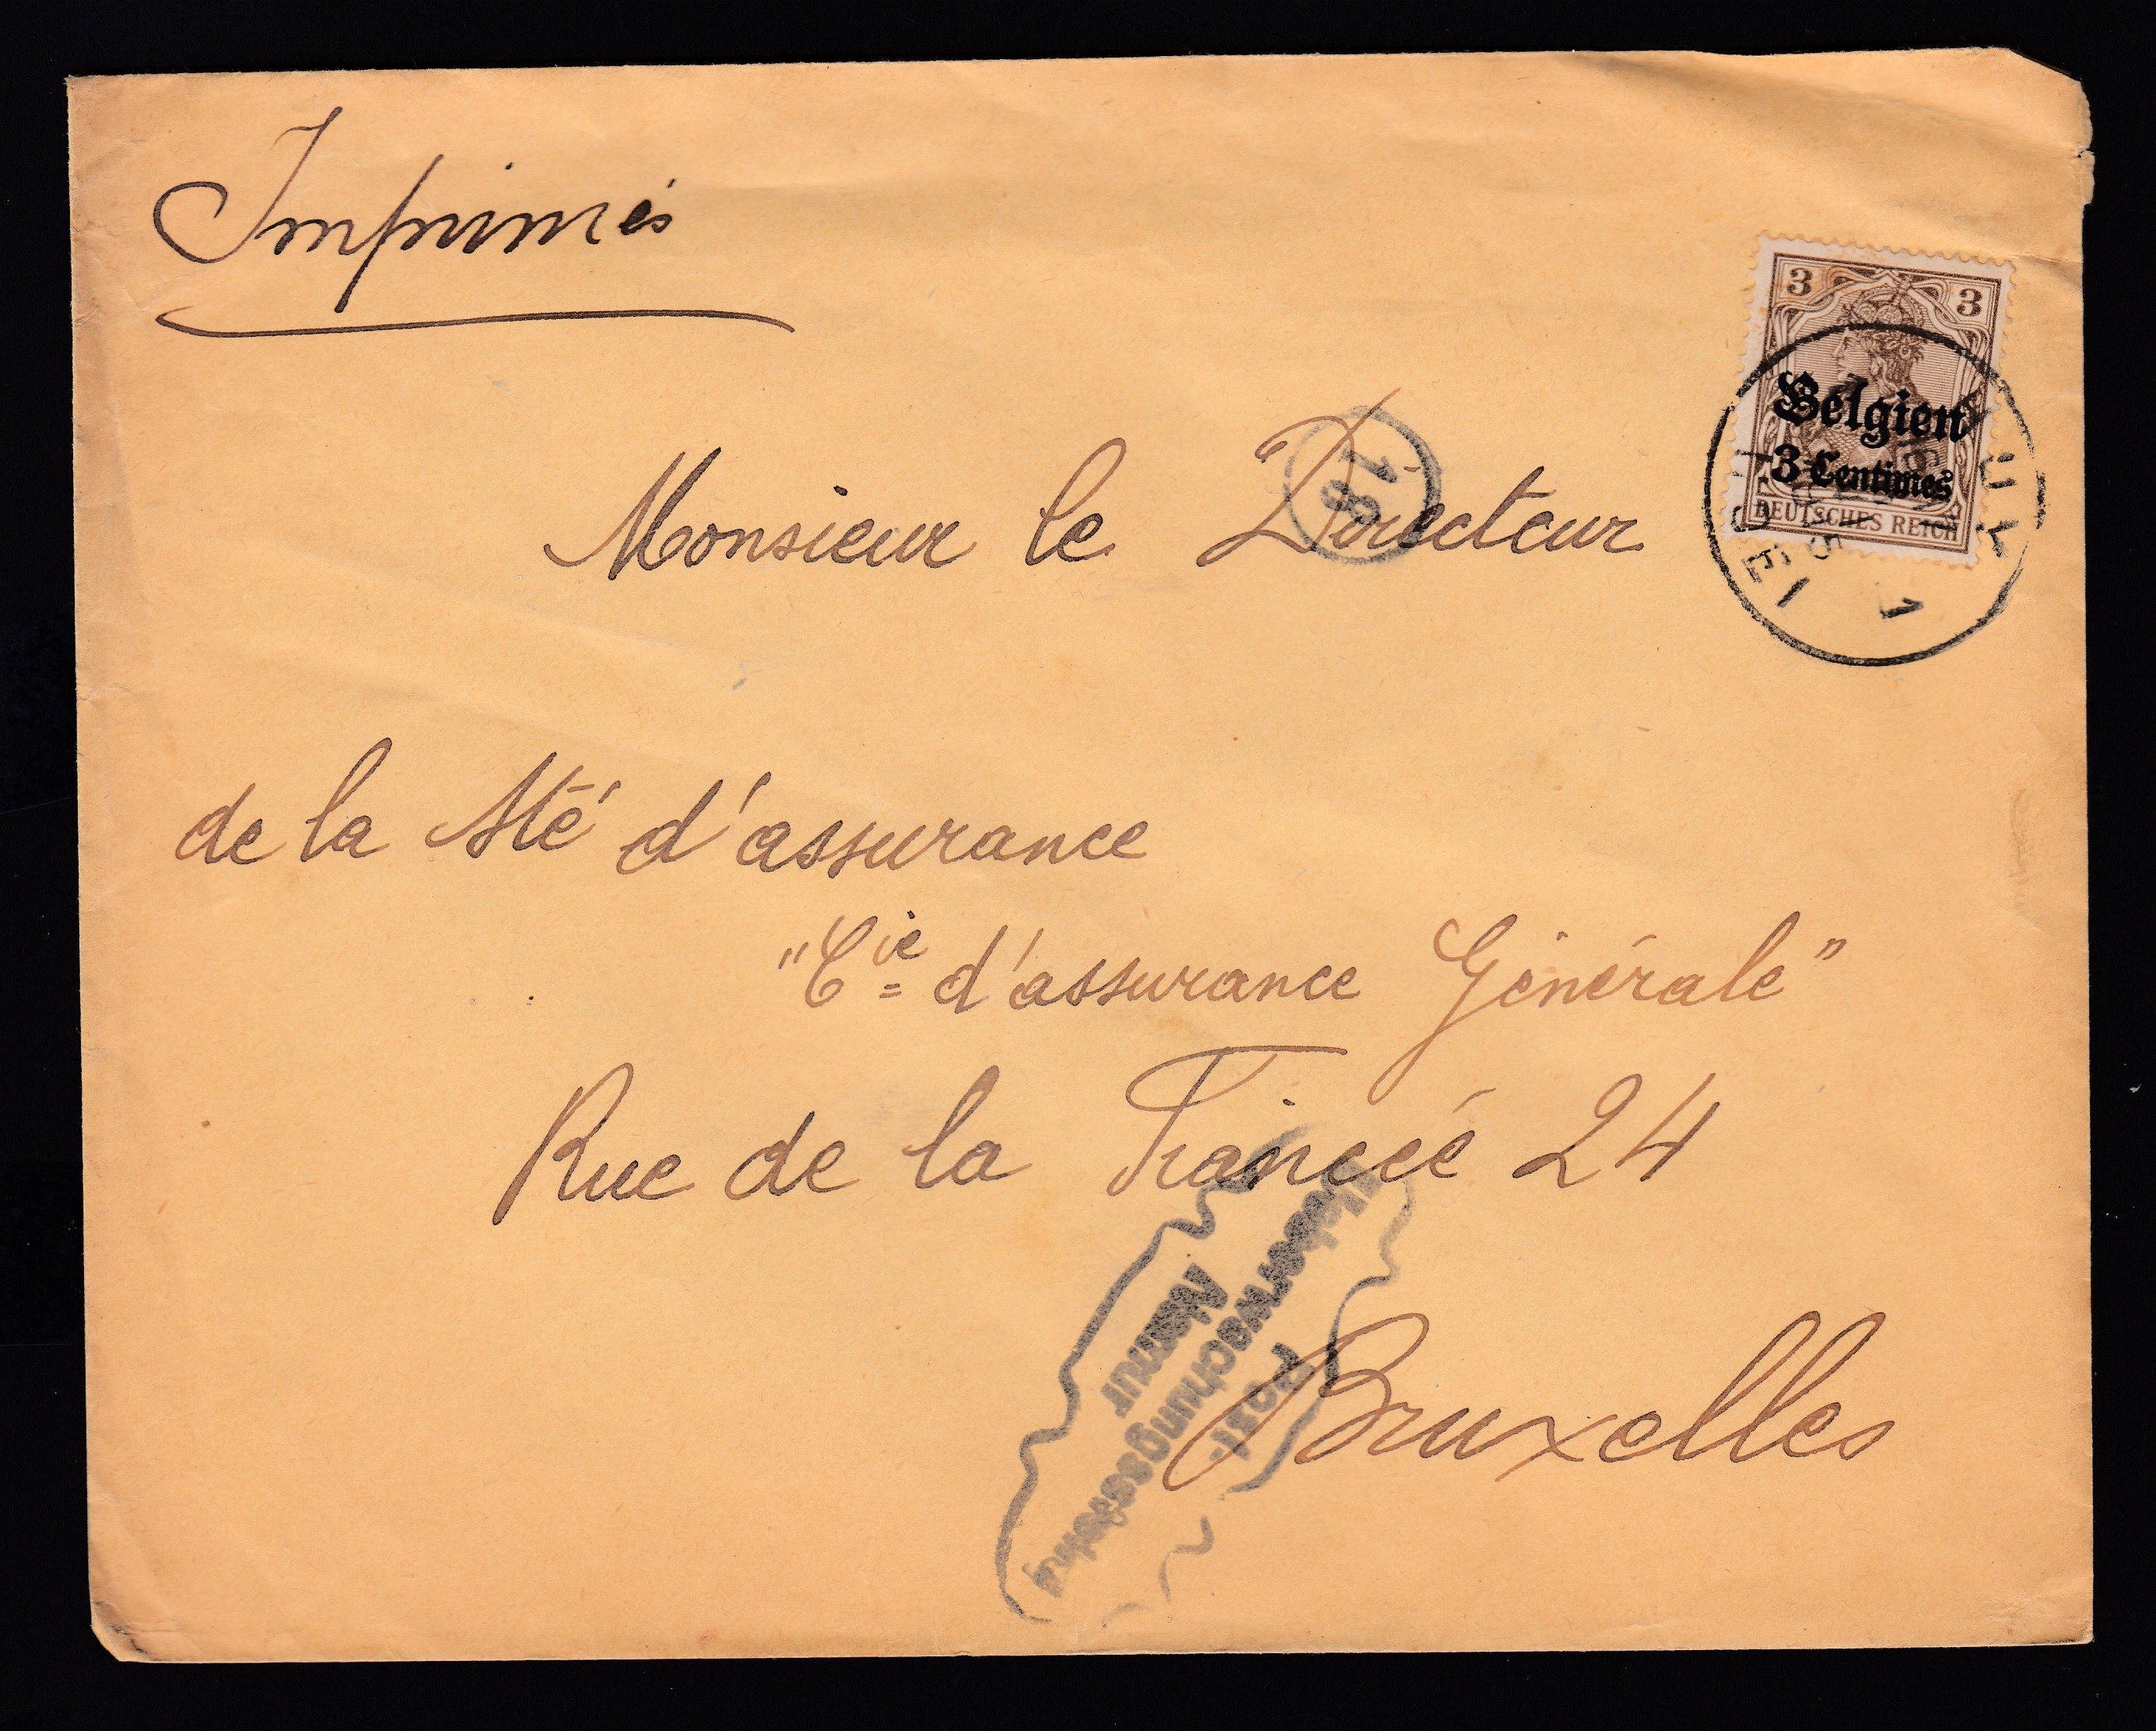 Imprimés
3 3
Belgien
3 Centimes
DEUTSCHES REICH
18
Monsieur le Directeur
de la Sté d'assurance
"Cie d'assurance Générale"
Rue de la Fiancée 24
Bruxelles
Post-
Ueberwachungsstelle
Namur